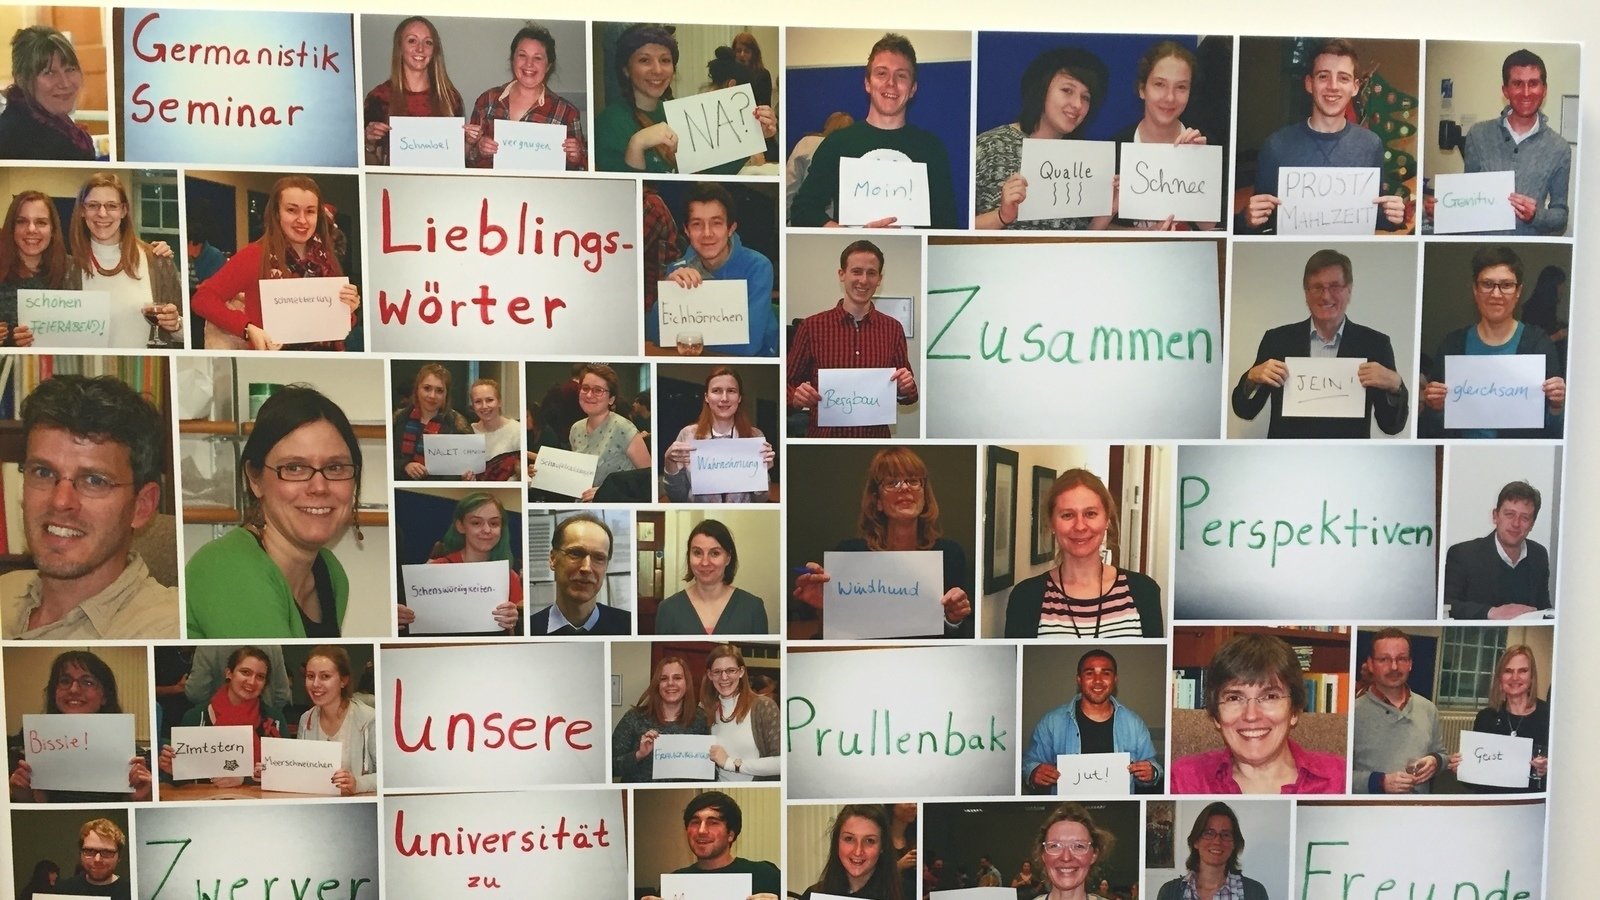 Germanistik
Seminar
Schnabel
vergnügen
NA?
Moin!
Qualle
Schnee
PROST/
MAHLZEIT
Genitiv
schönen
FEIERABEND!
Schmetterling
Lieblings-
wörter
Eichhörnchen
Bergbau
Zusammen
JEIN!
gleichsam
Wahrnehmung
Sehenswürdigkeiten.
Windhund
Perspektiven
Bissie!
Zimtstern
Meerschweinchen
Unsere
Prullenbak
jut!
Geist
Zwerver
Universität
zu
Freunde